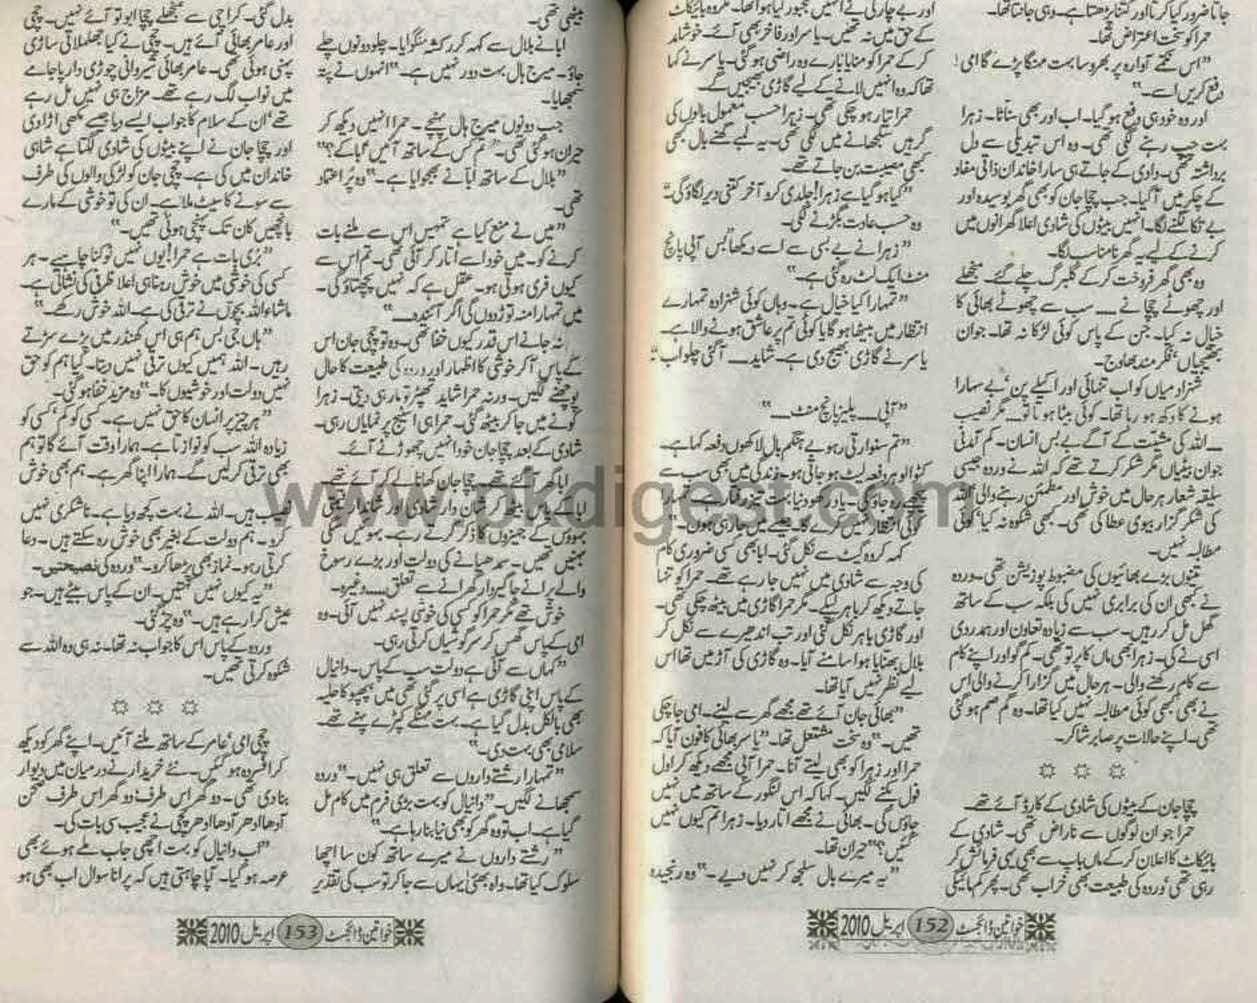 جانا ضرور کیا کرنا اور کتنا پڑھتا ہے۔ وہی جانتا تھا۔
حمرا کو سخت اعتراض تھا۔
”اس نکمے آوارہ پر بھروسا بہت مہنگا پڑے گا امی!
دفع کریں اسے۔“
اور وہ خود ہی دفع ہو گیا۔ اب اور بھی سناٹا۔ زہرا
بہت چپ رہنے لگی تھی۔ وہ اس تبدیلی سے دل
برداشتہ تھی۔ دادی کے جاتے ہی سارا خاندان ذاتی مفاد
کے چکر میں آ گیا۔ جب چچا جان کو بھی گھر بوسیدہ اور
بے تکا لگنے لگا۔ انہیں بیٹوں کی شادی اعلا گھرانوں میں
کرنے کے لیے یہ گھر نامناسب لگا۔
وہ بھی گھر فروخت کر کے گلبرگ چلے گئے۔ منجھلے
اور چھوٹے چچا نے ۔۔۔ سب سے چھوٹے بھائی کا
خیال نہ کیا۔ جن کے پاس کوئی لڑکا نہ تھا۔ جوان
بھتیجیاں، فکر مند بھاوج۔
شہزاد میاں کو اب تنہائی اور اکیلے پن، بے سہارا
ہونے کا دکھ ہو رہا تھا۔ کوئی بیٹا ہوتا تو۔ مگر نصیب
۔۔۔ اللہ کی مشیت کے آگے بے بس انسان۔ کم آمدنی
جوان بیٹیاں مگر شکر کرتے تھے کہ اللہ نے وردہ جیسی
سلیقہ شعار ہر حال میں خوش اور مطمئن رہنے والی اللہ
کی شکر گزار بیوی عطا کی تھی۔ کبھی شکوہ نہ کیا، کوئی
مطالبہ نہیں۔
تینوں بڑے بھائیوں کی مضبوط پوزیشن تھی۔ وردہ
نے کبھی ان کی برابری نہیں کی بلکہ سب کے ساتھ
گھل مل کر رہیں۔ سب سے زیادہ تعاون اور ہمدردی
اسی نے کی۔ زہرا بھی ماں کا پرتو تھی۔ کم گو اور اپنے کام
سے کام رکھنے والی۔ ہر حال میں گزارا کرنے والی اس
نے بھی کبھی کوئی مطالبہ نہیں کیا تھا۔ وہ گم صم ہو گئی
تھی۔ اپنے حالات پر صابر شاکر۔
چچا جان کے بیٹوں کی شادی کے کارڈ آئے تھے۔
حمرا جو ان لوگوں سے ناراض تھی۔ شادی کے
بائیکاٹ کا اعلان کر کے ماں باپ سے بھی یہی فرمائش کر
رہی تھی، وردہ کی طبیعت بھی خراب تھی۔ پھر کم مائیگی
اور بے چارگی نے انہیں مجبور کیا ہوا تھا۔ مگر وہ بائیکاٹ
کے حق میں نہ تھیں۔ یاسر اور فاخر بھی آئے۔ خوشامد
کر کے حمرا کو منایا بارے وہ راضی ہو گئی۔ یاسر نے کہا
تھا کہ وہ انہیں لانے کے لیے گاڑی بھیجیں گے۔
حمرا تیار ہو چکی تھی۔ زہرا حسب معمول بالوں کی
گرہیں سلجھانے میں لگی تھی۔ یہ لمبے گھنے بال بھی
کبھی مصیبت بن جاتے تھے۔
”کیا ہو گیا ہے زہرا! جلدی کرو آخر کتنی دیر لگاؤ گی۔“
وہ حسب عادت بگڑنے لگی۔
”زہرا نے بے بسی سے اسے دیکھا ”بس آپی پانچ
منٹ ایک لٹ رہ گئی ہے۔“
”تمہارا کیا خیال ہے۔ وہاں کوئی شہزادہ تمہارے
انتظار میں بیٹھا ہو گا یا کوئی تم پر عاشق ہونے والا ہے۔
یاسر نے گاڑی بھیج دی ہے۔ شاید۔۔۔ آ گئی چلو اب۔“
”آپی۔۔۔ پلیز پانچ منٹ۔۔۔“
”تم سنوارتی رہو یہ ہنگم بال لاکھوں دفعہ کہا ہے۔
کٹوا لو ہر دفعہ لیٹ ہو جاتی ہو۔ زندگی میں بھی سب سے
پیچھے رہ جاؤ گی۔ یاد رکھو دنیا بہت تیز رفتار ہے۔ تمہارا
کوئی انتظار نہیں کرے گا۔ میں جا رہی ہوں۔“
کہہ کر وہ گیٹ سے نکل گئی۔ ابا بھی کسی ضروری کام
کی وجہ سے شادی میں نہیں جا رہے تھے۔ حمرا کو تنہا
جاتے دیکھ کر باہر لپکے۔ مگر حمرا گاڑی میں بیٹھ چکی تھی۔
اور گاڑی باہر نکل گئی اور تب اندھیرے سے نکل کر
بلال بھنایا ہوا سامنے آیا۔ وہ گاڑی کی آڑ میں تھا اس
لیے نظر نہیں آیا تھا۔
”بھائی جان آئے تھے مجھے گھر سے لینے۔ امی جا چکی
تھیں۔“ وہ سخت مشتعل تھا۔ ”یاسر بھائی کا فون آیا کہ
حمرا اور زہرا کو بھی لیتے آنا۔ حمرا آپی مجھے دیکھ کر اول
فول بکنے لگیں۔ کہا کہ اس لنگور کے ساتھ میں نہیں
جاؤں گی۔ بھائی نے مجھے اتار دیا۔ زہرا تم کیوں نہیں
گئیں؟“ حیران تھا۔
”یہ میرے بال سلجھ کر نہیں دیے۔“ وہ رنجیدہ
خواتین ڈائجسٹ 152 اپریل 2010
بیٹھی تھی۔
ابا نے بلال سے کہہ کر رکشہ منگوایا۔ چلو دونوں چلے
جاؤ۔ میرج ہال بہت دور نہیں ہے۔“ انہوں نے پتہ
سمجھایا۔
جب دونوں میرج ہال پہنچے۔ حمرا انہیں دیکھ کر
حیران ہو گئی تھی۔ ”تم کس کے ساتھ آئیں ابا کے؟“
”بلال کے ساتھ ابا نے بھجوایا ہے۔“ وہ پر اعتماد
تھی۔
”میں نے منع کیا ہے تمہیں اس سے ملنے بات
کرنے کو۔ میں خود اسے اتار کر آئی تھی۔ تم اس سے
کیوں فری ہوتی ہو۔ عقل ہے کہ نہیں پچھتاؤ گی۔
میں تمہارا منہ توڑ دوں گی اگر آئندہ۔۔۔“
نہ جانے اس قدر کیوں خفا تھی۔ وہ تو چچی جان اس
کے پاس آ کر خوشی کا اظہار اور وردہ کی طبیعت کا حال
پوچھنے لگیں۔ ورنہ حمرا شاید تھپڑ تو مار ہی دیتی۔ زہرا
کونے میں جا کر بیٹھ گئی۔ حمرا ہی اسٹیج پر نمایاں رہی۔
شادی کے بعد چچا جان خود انہیں چھوڑنے آئے۔
ابا گھر آ گئے تھے۔ چچا جان کھانا لے کر آئے تھے۔
ابا کے پاس بیٹھ کر شان دار شادی اور شاندار قیمتی
بہوؤں کے جہیزوں کا ذکر کرتے رہے۔ بہوئیں سگی
بہنیں تھیں۔ سمدھیانے کی دولت اور بڑے رسوخ
والے پرانے جاگیردار گھرانے سے تعلق۔۔۔ وغیرہ۔
خوش تھے مگر حمرا کو کسی کی خوشی پسند نہیں آئی۔ وہ
امی کے پاس گھس کر سرگوشیاں کرتی رہی۔
”کہاں سے آئی ہے دولت سب کے پاس۔ دانیال
کے پاس اپنی گاڑی ہے اسی پر گئی تھی میں، پھپھو کا حلیہ
بھی بالکل بدل گیا ہے۔ بہت مہنگے کپڑے پہنے تھے۔
سلامی بھی بہت دی۔“
”تمہارا رشتے داروں سے تعلق ہی نہیں۔“ وردہ
سمجھانے لگیں۔ ”دانیال کو بہت بڑی فرم میں کام مل
گیا ہے۔ اب تو وہ گھر کو بھی نیا بنا رہا ہے۔“
”رشتے داروں نے میرے ساتھ کون سا اچھا
سلوک کیا تھا۔ واہ بھئی یہاں سے جا کر تو سب کی تقدیر
بدل گئی۔ کراچی سے منجھلے چچا ابو تو آئے نہیں۔ چچی
اور عامر بھائی آئے ہیں۔ چچی نے کیا جھلملاتی ساڑی
پہنی ہوئی تھی۔ عامر بھائی شیروانی چوڑی دار پاجامے
میں نواب لگ رہے تھے۔ مزاج ہی نہیں مل رہے
تھے، ان کے سلام کا جواب ایسے دیا جیسے مکھی اڑا دی
اور چچا جان نے اپنے بیٹوں کی شادی لگتا ہے شاہی
خاندان میں کی ہے۔ چچی جان کو لڑکی والوں کی طرف
سے سونے کا سیٹ ملا ہے۔ ان کی تو خوشی کے مارے
بانچھیں کان تک پہنچی ہوئی تھیں۔“
”بری بات ہے حمرا! یوں نہیں ٹوکنا چاہیے۔ ہر
کسی کی خوشی میں خوش رہنا ہی اعلا ظرفی کی نشانی ہے۔
ماشاء اللہ بچوں نے ترقی کی ہے۔ اللہ خوش رکھے۔“
”ہاں جی بس ہم ہی اس کھنڈر میں پڑے سڑتے
رہیں۔ اللہ ہمیں کیوں ترقی نہیں دیتا۔ کیا ہم کو حق
نہیں دولت اور خوشیوں کا۔“ وہ مزید خفا ہو گئی۔
”ہر چیز پر انسان کا حق نہیں ہے۔ کسی کو کم، کسی کو
زیادہ اللہ سب کو نوازتا ہے۔ ہمارا وقت آئے گا تو ہم
بھی ترقی کر لیں گے۔ ہمارا اپنا گھر ہے۔ ہم بھی خوش
نصیب ہیں۔ اللہ نے بہت کچھ دیا ہے۔ ناشکری نہیں
کرو۔ ہم دولت کے بغیر بھی خوش رہ سکتے ہیں۔ دعا
کرتی رہو۔ نماز بھی پڑھا کرو۔“ وردہ کی نصیحتیں۔
”یہ کیوں نہیں کہتیں۔ ان کے پاس بیٹے ہیں۔ جو
عیش کرا رہے ہیں۔“ وہ چڑ گئی۔
وردہ کے پاس اس کا جواب نہ تھا۔ نہ ہی وہ اللہ سے
شکوہ کرتی تھیں۔
چچی امی، عامر کے ساتھ ملنے آئیں۔ اپنے گھر کو دیکھ
کر افسردہ ہو گئیں۔ نئے خریدار نے درمیان میں دیوار
بنا دی تھی۔ دو گھر اس طرف، دو گھر اس طرف صحن
آدھا ادھر آدھا ادھر چچی نے عجیب سی بات کی۔
”اب دانیال کو بہت اچھی جاب ملے ہوئے بھی
عرصہ ہو گیا۔ آپا چاہتی ہیں کہ پرانا سوال اب بھی ہو
خواتین ڈائجسٹ 153 اپریل 2010
www.pkdigest.com